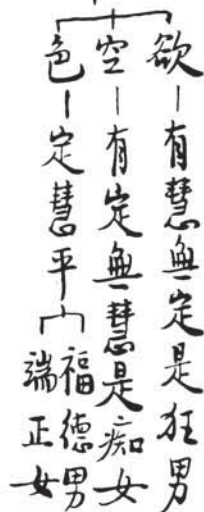 欲—有慧無定是狂男
空—有定無慧是痴女
色—定慧平
福德男
端正女